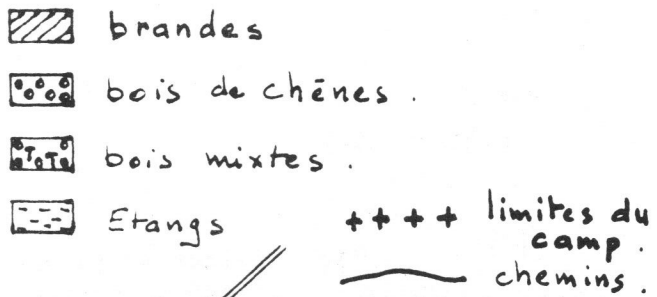 brandes
bois de chênes .
bois mixtes .
Etangs
++++ limites du
camp .
chemins .